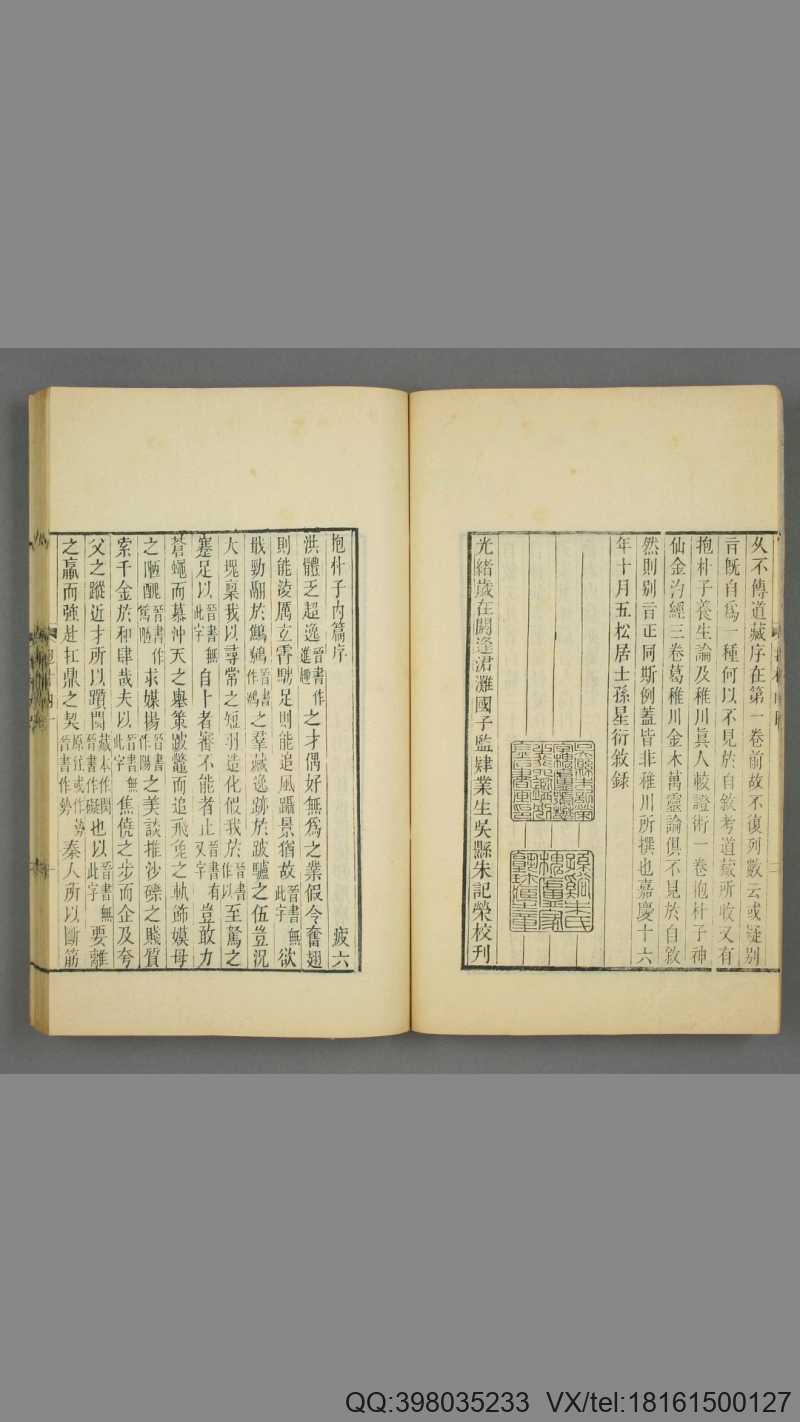 久不傳道藏序在第一卷前故不復列數云或疑别
言既自爲一種何以不見於自敘考道藏所收又有
抱朴子養生論及稚川眞人較證術一卷抱朴子神
仙金汋經三卷葛稚川金木萬靈論俱不見於自敘
然則别言正同斯例蓋皆非稚川所撰也嘉慶十六
年十月五松居士孫星衍敘錄
光緒歲在閼逢涒灘國子監肄業生吳縣朱記榮校刊
抱朴子内篇序 疲六
洪體乏超逸晉書作進趣之才偶好無爲之業假令奮翅
則能淩厲玄霄騁足則能追風躡景猶故晉書無此字欲
戢勁翮於鷦鷃晉書作鷃之羣藏逸跡於跛驢之伍豈況
大塊稟我以尋常之短羽造化假我於晉書作以至駑之
蹇足以晉書無此字自卜者審不能者止晉書有又字豈敢力
蒼蠅而慕沖天之舉策跛鼈而追飛兔之軌飾嫫母
之陋醜晉書作篤陋求媒揚晉書作陽之美談推沙礫之賤質
索千金於和肆哉夫以晉書無此字焦僥之步而企及夸
父之蹤近才所以躓閡藏本作閡晉書作礙也以晉書無此字要離
之羸而強赴扛鼎之契原注或作勢晉書作勢秦人所以斷筋
QQ:398035233 VX/tel:18161500127